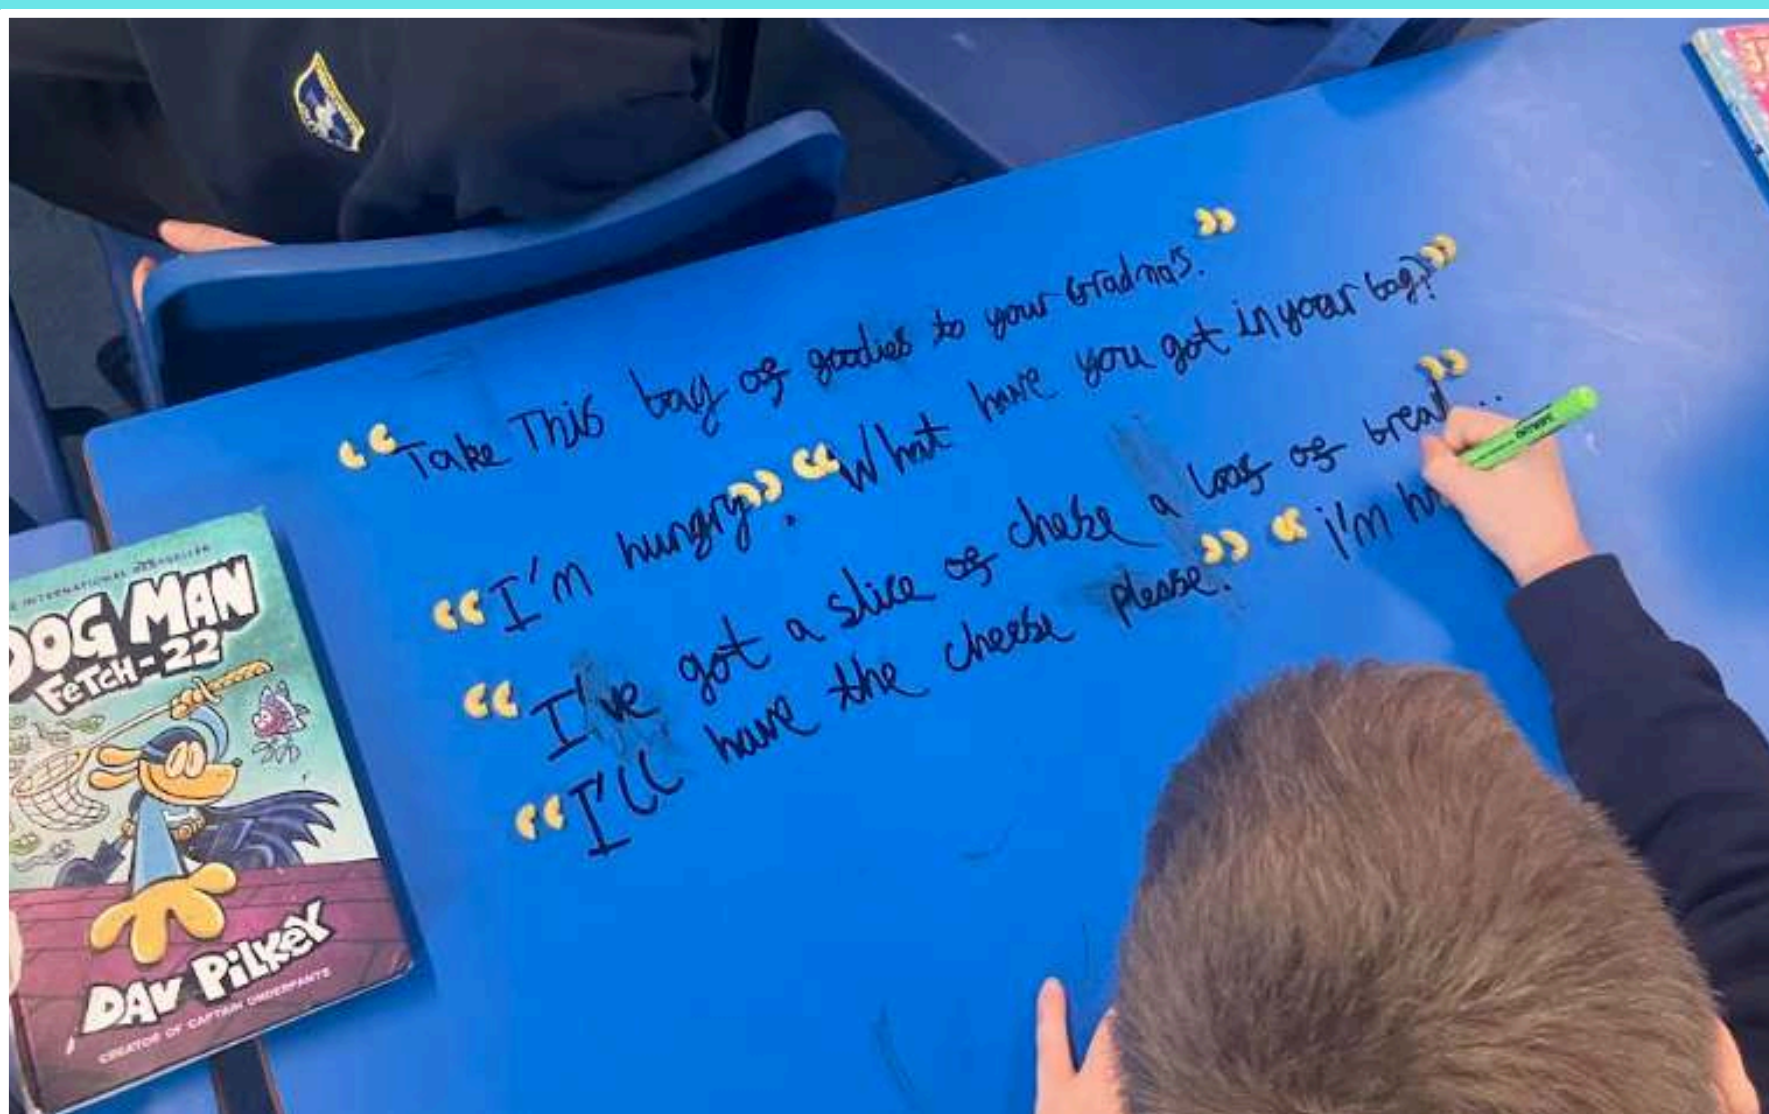 “Take This bag of goodies to your Gradna's.”
“I'm hungry”. “What have you got in your bag?”
“I've got a slice of cheese a loaf of bread”..
“I'll have the cheese please.” “i'm
INTERNATIONAL BESTSELLER
DOG MAN
FETCH-22
DAV PILKEY
CREATOR OF CAPTAIN UNDERPANTS